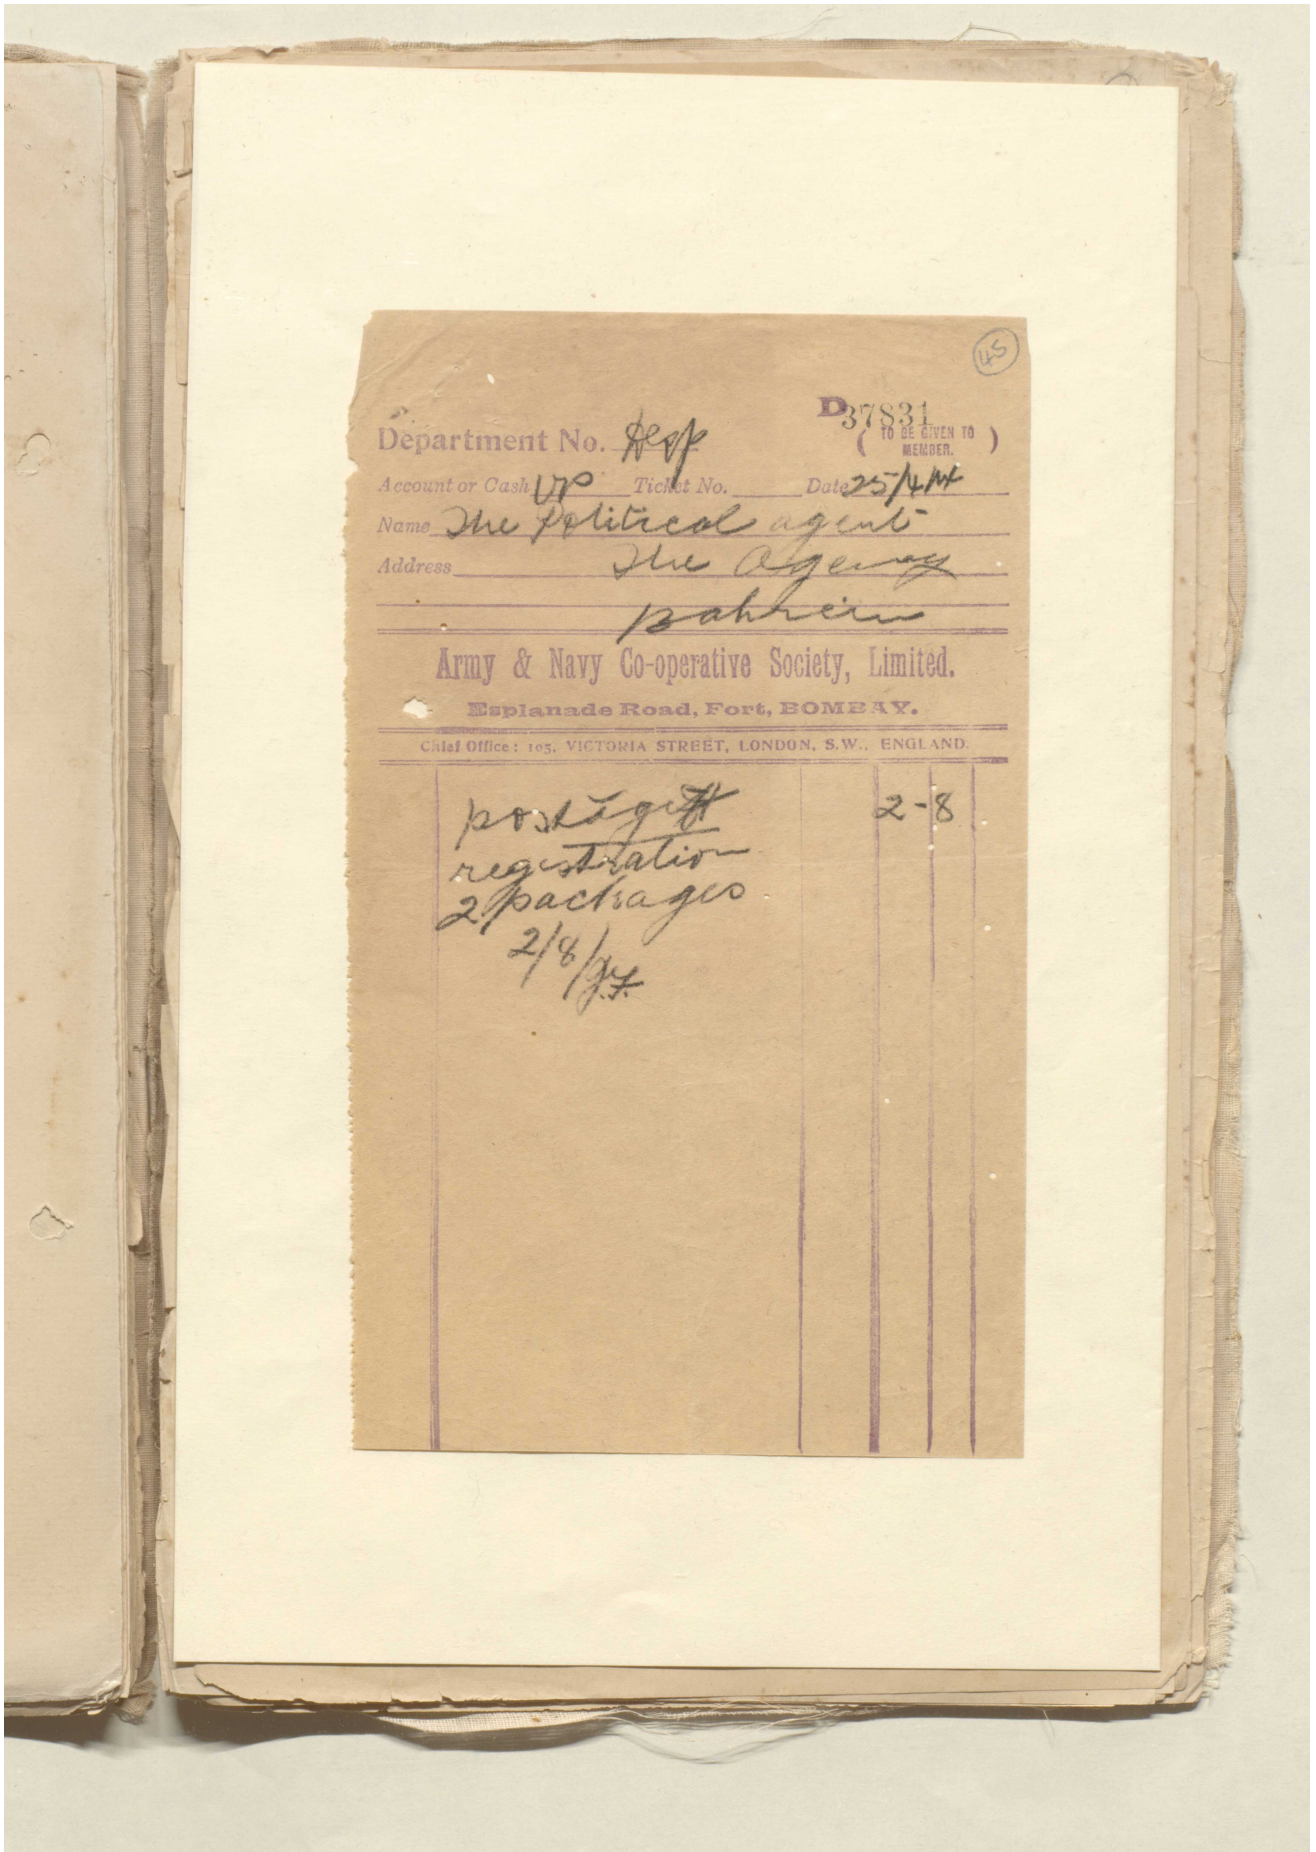 45
D 37831
Department No. Desp (TO BE GIVEN TO MEMBER.)
Account or Cash VP Ticket No. Date 25/4/14
Name The Political agent
Address The Agency
Bahrein
Army & Navy Co-operative Society, Limited.
Esplanade Road, Fort, BOMBAY.
Chief Office: 105, VICTORIA STREET, LONDON, S.W., ENGLAND.
postage & 2-8
registration
2 packages
2/8/
J.F.